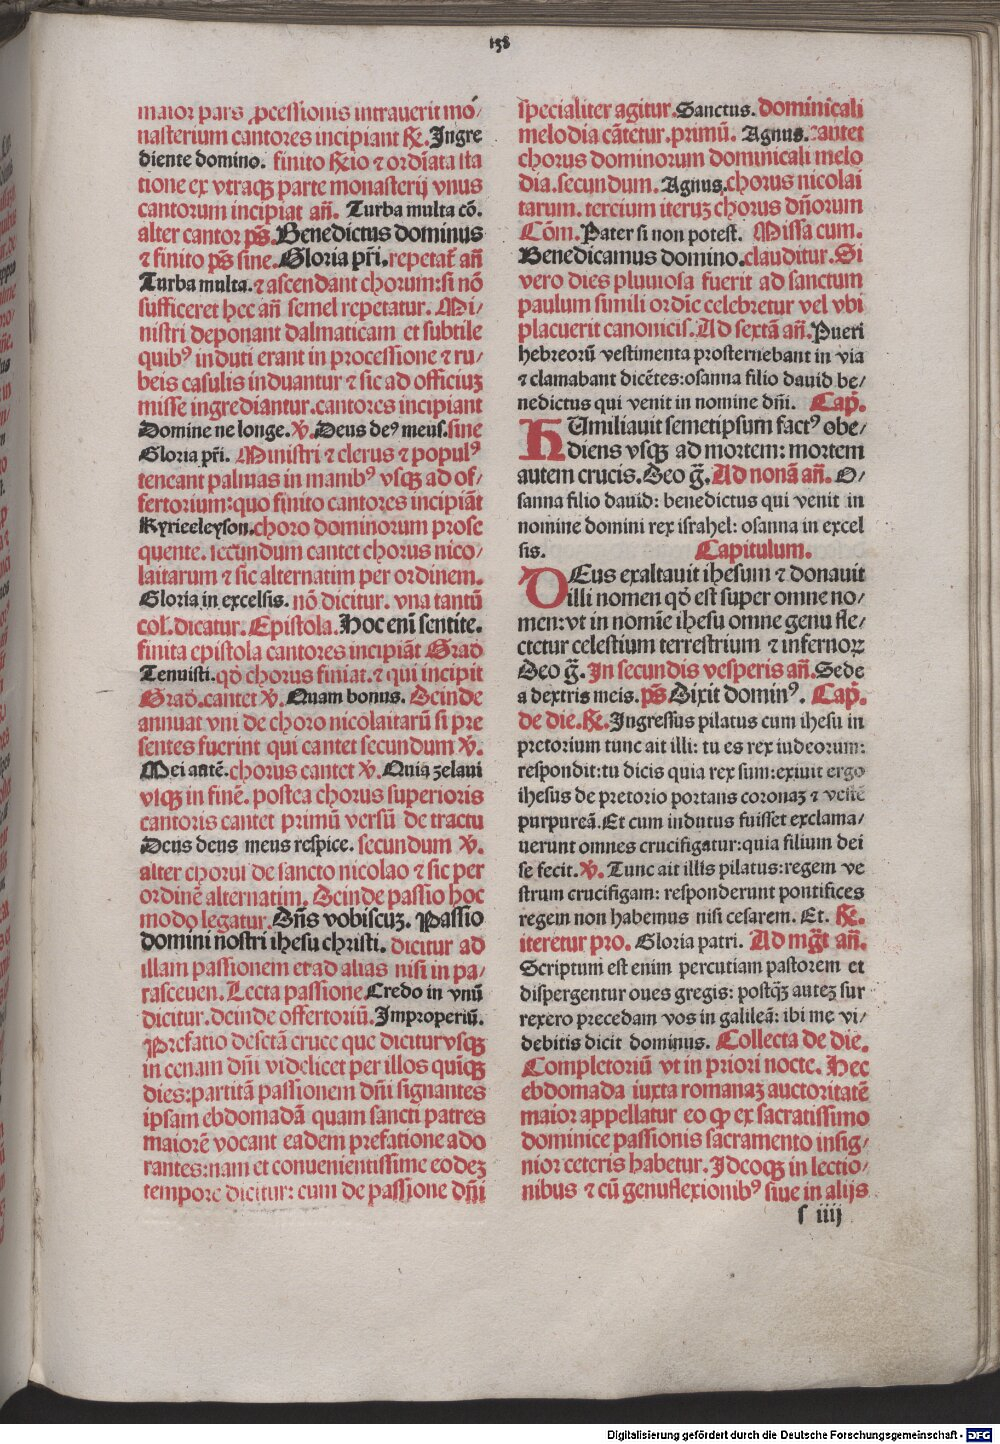 158
maior pars ꝓcessionis intrauerit mo/
nasterium cantores incipiant ℟. Ingre
diente domino. finito ℟io ⁊ ordīata sta
tione ex vtraqꝫ parte monasterij vnus
cantorum incipiat añ. Turba multa cō.
alter cantor pš. Benedictus dominus
⁊ finito pš sine. Gloria pr̄i. repetat᷑ añ
Turba multa. ⁊ ascendant chorum: si nō
sufficeret hec añ semel repetatur. Mi/
nistri deponant dalmaticam et subtile
quibꝰ induti erant in processione ⁊ ru/
beis casulis induantur ⁊ sic ad officiuꝫ
misse ingrediantur. cantores incipiant
Domine ne longe. ℣. Deus deꝰ meus. sine
Gloria pr̄i. Ministri ⁊ clerus ⁊ populꝰ
teneant palmas in manibꝰ vsqꝫ ad of/
fertorium: quo finito cantores incipiāt
Kyrieeleyson. choro dominorum prose
quente. secūdum cantet chorus nico/
laitarum ⁊ sic alternatim per ordinem.
Gloria in excelsis. nō dicitur. vna tantū
col. dicatur. Epistola. Hoc enī sentite.
finita epistola cantores incipiāt Grad̄
Tenuisti. qd̄ chorus finiat. ⁊ qui incipit
Grad̄. cantet ℣. Quam bonus. Deinde
annuat vni de choro nicolaitarū si pre
sentes fuerint qui cantet secundum ℣.
Mei autē. chorus cantet ℣. Quia zelaui
vsqꝫ in finē. postea chorus superioris
cantoris cantet primū versū de tractu
Deus deus meus respice. secundum ℣.
alter chorui de sancto nicolao ⁊ sic per
ordinē alternatim. Deinde passio hoc
modo legatur. Dñs vobiscuꝫ. Passio
domini nostri ihesu christi. dicitur ad
illam passionem et ad alias nisi in pa/
rasceuen. Lecta passione Credo in vnū
dicitur. deinde offertoriū. Improperiū.
Prefatio de sctā cruce que dicitur vsqꝫ
in cenam dn̄i videlicet per illos quīqꝫ
dies: partitā passionem dn̄i signantes
ipsam ebdomadā quam sancti patres
maiorē vocant eadem prefatione ado
rantes: nam et conuenientissime eodeꝫ
tempore dicitur: cum de passione dn̄i
specialiter agitur. Sanctus. dominicali
melodia cātetur. primū. Agnus. cantet
chorus dominorum dominicali melo
dia. secundum. Agnus. chorus nicolai
tarum. tercium iteruꝫ chorus dñorum
Cōm. Pater si non potest. Missa cum.
Benedicamus domino. clauditur. Si
vero dies pluuiosa fuerit ad sanctum
paulum simili ordīe celebretur vel vbi
placuerit canonicis. Ad sextā añ. Pueri
hebreorū vestimenta prosternebant in via
⁊ clamabant dicētes: osanna filio dauid be/
nedictus qui venit in nomine dn̄i. Cap̄.
HUmiliauit semetipsum factꝰ obe/
diens vsqꝫ ad mortem: mortem
autem crucis. Deo g̃. Ad nonā añ. O/
sanna filio dauid: benedictus qui venit in
nomine domini rex israhel: osanna in excel
sis. Capitulum.
DEus exaltauit ihesum ⁊ donauit
illi nomen qd̄ est super omne no/
men: vt in nomīe ihesu omne genu fle/
ctetur celestium terrestrium ⁊ infernoꝝ
Deo g̃. In secundis vesperis añ. Sede
a dextris meis. pš Dixit dominꝰ. Cap̄.
de die. ℟. Ingressus pilatus cum ihesu in
pretorium tunc ait illi: tu es rex iudeorum:
respondit: tu dicis quia rex sum: exiuit ergo
ihesus de pretorio portans coronaꝫ ⁊ vestē
purpureā. Et cum indutus fuisset exclama/
uerunt omnes crucifigatur: quia filium dei
se fecit. ℣. Tunc ait illis pilatus: regem ve
strum crucifigam: responderunt pontifices
regem non habemus nisi cesarem. Et. ℟.
iteretur pro. Gloria patri. Ad mg̃t añ.
Scriptum est enim percutiam pastorem et
dispergentur oues gregis: postqꝫ̄ auteꝫ sur
rexero precedam vos in galileā: ibi me vi/
debitis dicit dominus. Collecta de die.
Completoriū vt in priori nocte. Hec
ebdomada iuxta romanaꝫ auctoritatē
maior appellatur eo ꝙ ex sacratissimo
dominice passionis sacramento insig/
nior ceteris habetur. Ideoqꝫ in lectio/
nibus ⁊ cū genuflexionibꝰ siue in alijs
s iiij
Digitalisierung gefördert durch die Deutsche Forschungsgemeinschaft - DFG